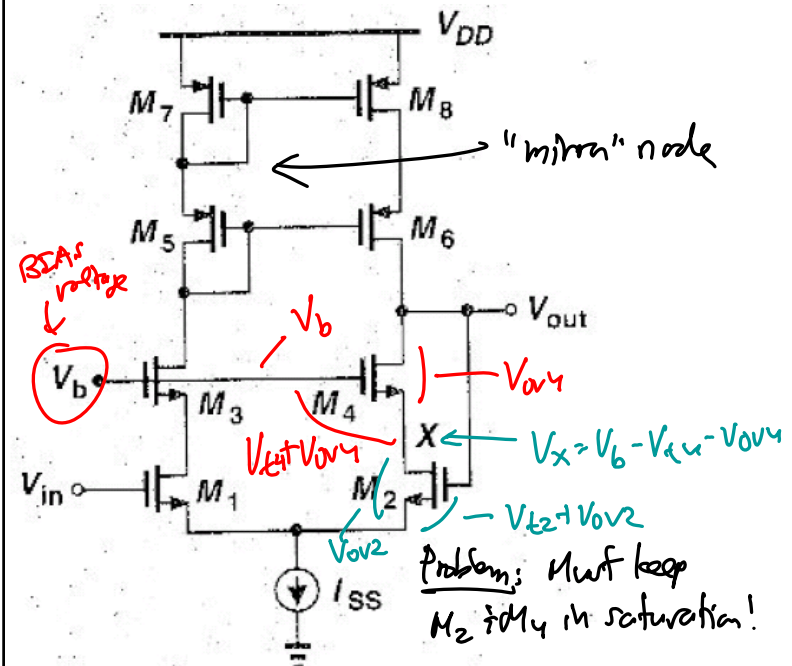 V_DD
M_7
M_8
"mirror" node
M_5
M_6
BIAS
voltage
V_out
V_b
V_b
V_ov4
M_3
M_4
X
V_x = V_b - V_t4 - V_ov4
V_t4 + V_ov4
V_in
M_1
M_2
V_t2 + V_ov2
V_ov2
Problem: Must keep
I_SS
M_2 & M_4 in saturation!